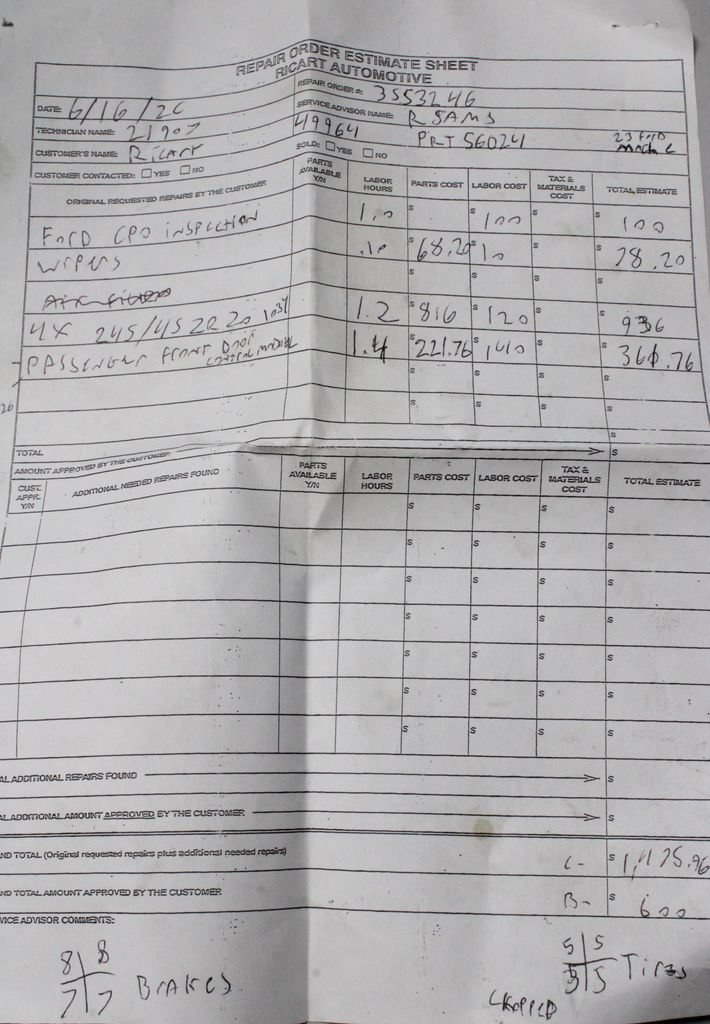 REPAIR ORDER ESTIMATE SHEET
RICART AUTOMOTIVE
DATE: 6/16/26
REPAIR ORDER #: 3553246
TECHNICIAN NAME: 21907
SERVICE ADVISOR NAME: R SAMS
CUSTOMER'S NAME: RICART
49964 PRT 56024 23 FORD MACH E
CUSTOMER CONTACTED: YES NO SOLD: YES NO
ORIGINAL REQUESTED REPAIRS BY THE CUSTOMER PARTS AVAILABLE Y/N LABOR HOURS PARTS COST LABOR COST TAX & MATERIALS COST TOTAL ESTIMATE
FORD CPO INSPECTION 1.0 $ $ 100 $ $ 100
WIPERS .10 $ 68.20 $ 10 $ $ 78.20
AIR FILTER $ $ $ $
4X 245/45ZR20 103Y 1.2 $ 816 $ 120 $ 936
PASSENGER FRONT DOOR CONTROL MODULE 1.4 $ 221.76 $ 140 $ 361.76
$ $ $
$ $ $
$
TOTAL $
AMOUNT APPROVED BY THE CUSTOMER
CUST. APPR. Y/N ADDITIONAL NEEDED REPAIRS FOUND PARTS AVAILABLE Y/N LABOR HOURS PARTS COST LABOR COST TAX & MATERIALS COST TOTAL ESTIMATE
$ $ $ $
$ $ $ $
$ $ $ $
$ $ $ $
$ $ $ $
$ $ $ $
$ $ $ $
AL ADDITIONAL REPAIRS FOUND $
AL ADDITIONAL AMOUNT APPROVED BY THE CUSTOMER $
ND TOTAL (Original requested repairs plus additional needed repairs) C- $ 1,475.96
ND TOTAL AMOUNT APPROVED BY THE CUSTOMER B- $ 600
VICE ADVISOR COMMENTS:
8 8
7 7 BRAKES
5 5
5 5 TIRES